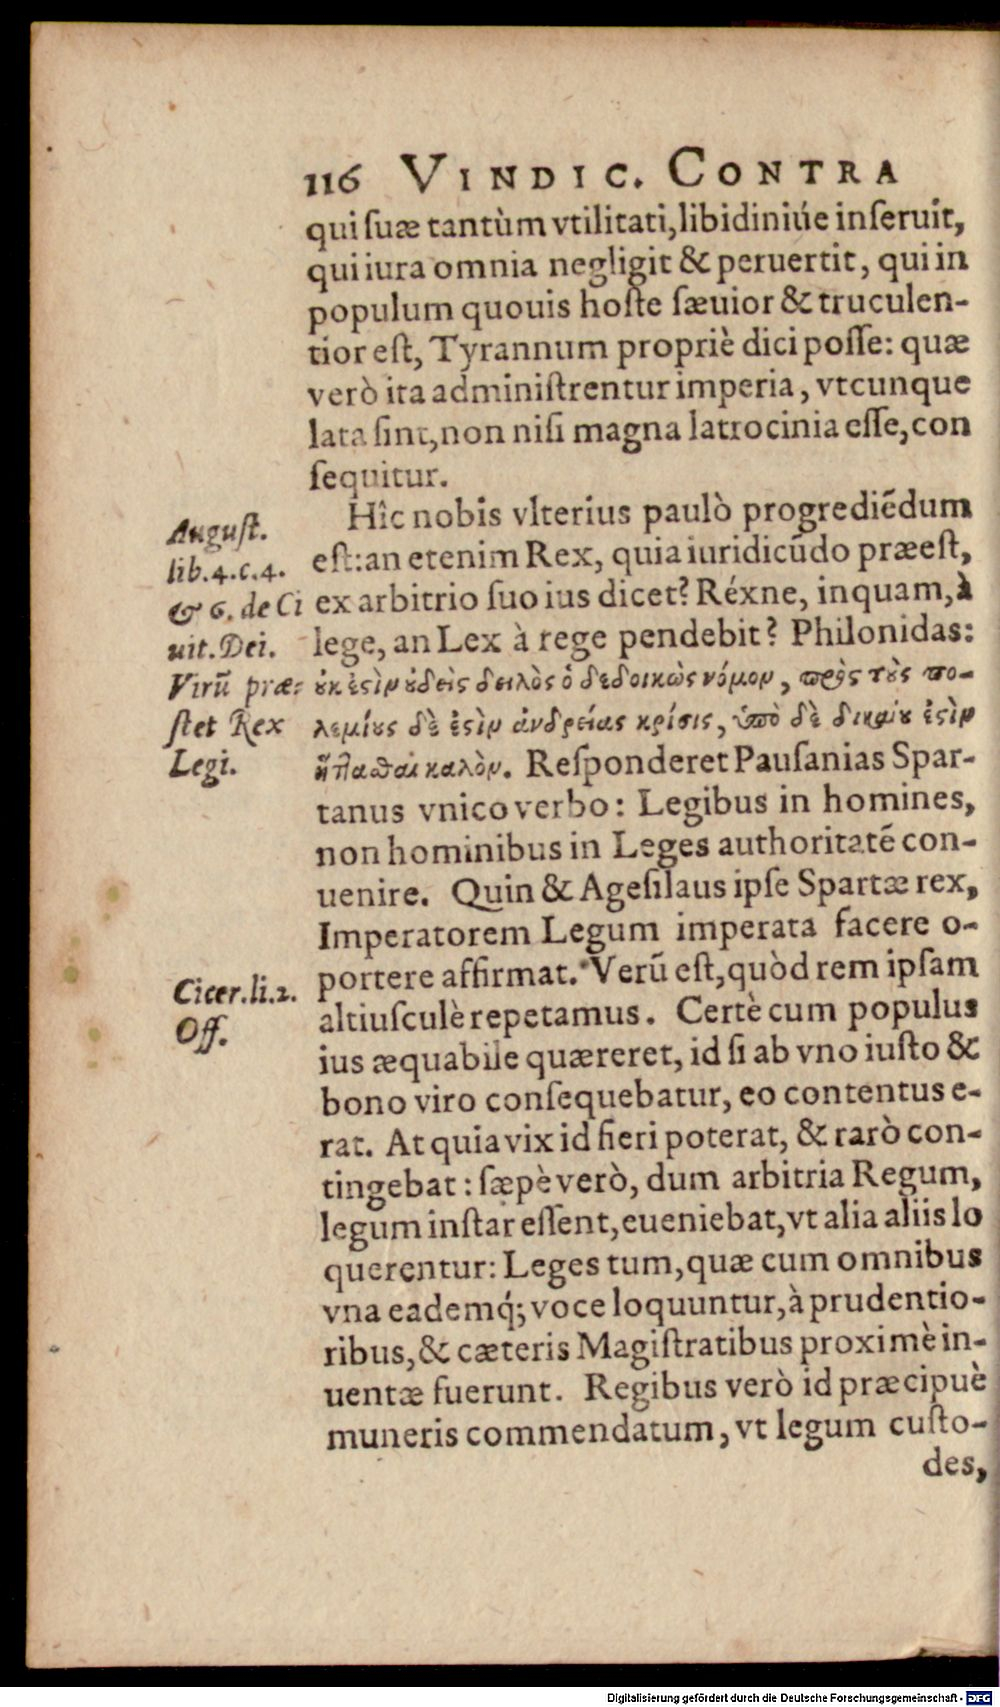 116 VINDIC. CONTRA
qui ſuæ tantùm vtilitati, libidiniúe inſeruit,
qui iura omnia negligit & peruertit, qui in
populum quouis hoſte ſæuior & truculen-
tior eſt, Tyrannum propriè dici poſſe: quæ
verò ita adminiſtrentur imperia, vtcunque
lata ſint, non niſi magna latrocinia eſſe, con
ſequitur.
Hîc nobis vlterius paulò progrediẽdum
est: an etenim Rex, quia iuridicũdo præeſt,
ex arbitrio ſuo ius dicet? Réxne, inquam, à
lege, an Lex à rege pendebit? Philonidas:
ȣκ ἐϛὶν ȣδεὶς δειλὸς ὁ δεδοικὼς νόμον, πρὸς τȣ̀ς πο-
λεμίȣς δὲ ἐϛὶν ἀνδρείας κρίσις, ὑπὸ δὲ δικαίȣ ἐϛὶν
καλὸν. Reſponderet Pauſanias Spar-
tanus vnico verbo: Legibus in homines,
non hominibus in Leges authoritatẽ con-
uenire. Quin & Ageſilaus ipſe Spartæ rex,
Imperatorem Legum imperata facere o-
portere affirmat. Verũ eſt, quòd rem ipſam
altiuſculè repetamus. Certè cum populus
ius æquabile quæreret, id ſi ab vno iuſto &
bono viro conſequebatur, eo contentus e-
rat. At quia vix id fieri poterat, & rarò con-
tingebat: ſæpè verò, dum arbitria Regum,
legum inſtar eſſent, eueniebat, vt alia aliis lo
querentur: Leges tum, quæ cum omnibus
vna eademq́; voce loquuntur, à prudentio-
ribus, & cæteris Magiſtratibus proximè in-
uentæ fuerunt. Regibus verò id præcipuè
muneris commendatum, vt legum cuſto-
des,
Auguſt.
lib. 4. c. 4.
& 6. de Ci
uit. Dei.
Virũ præ-
ſtet Rex
Legi.
Cicer. li. 2.
Off.
Digitalisierung gefördert durch die Deutsche Forschungsgemeinschaft - DFG